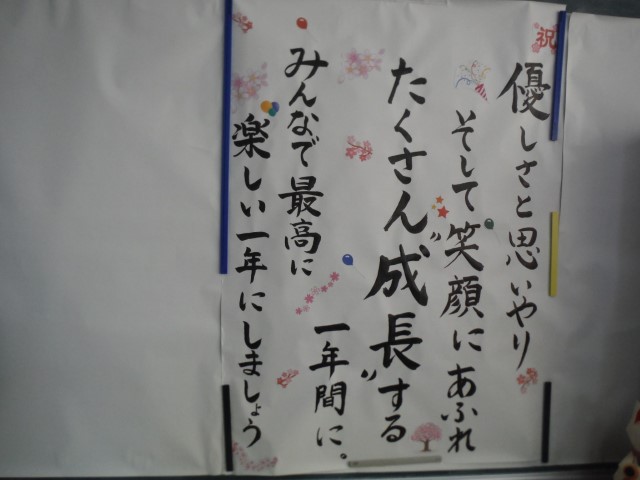 祝
優しさと思いやり
そして笑顔にあふれ
たくさん"成長"する
一年間に。
みんなで最高に
楽しい一年にしましょう